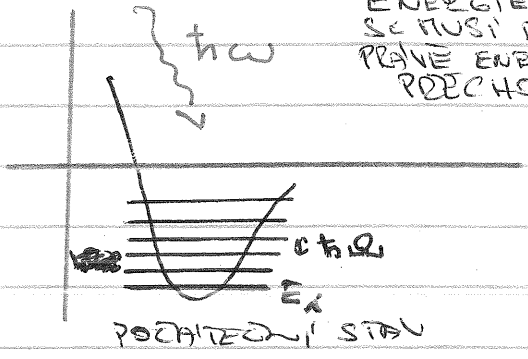 ENERGIE
SE MUSÍ
PRÁVE ENE
PŘECHO
ħω
ħΩ
E
POČÁTEČNÍ STAV